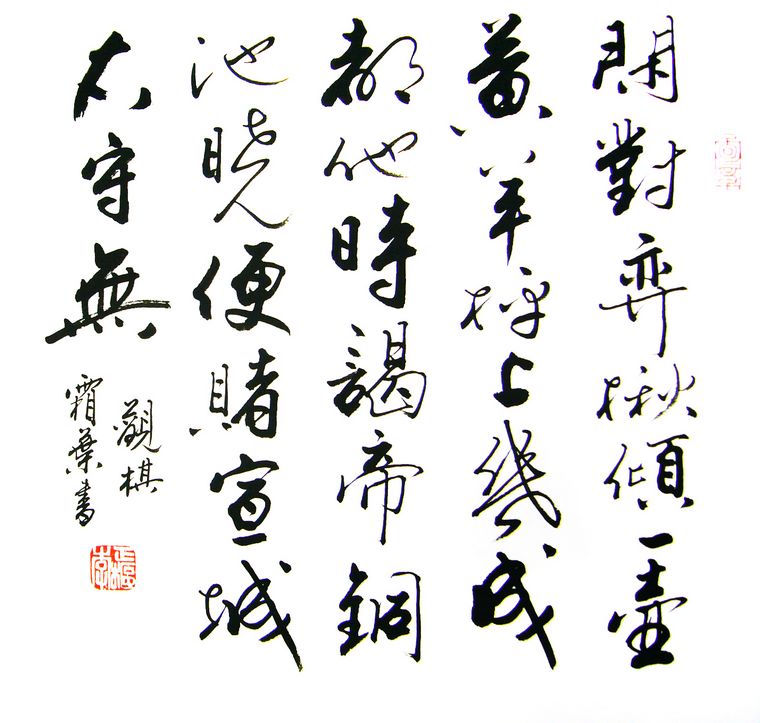 閑對弈楸傾一壺
黃羊枰上幾成
都他時謁帝銅
池曉便賭宣城
太守無
觀棋
霜葉書